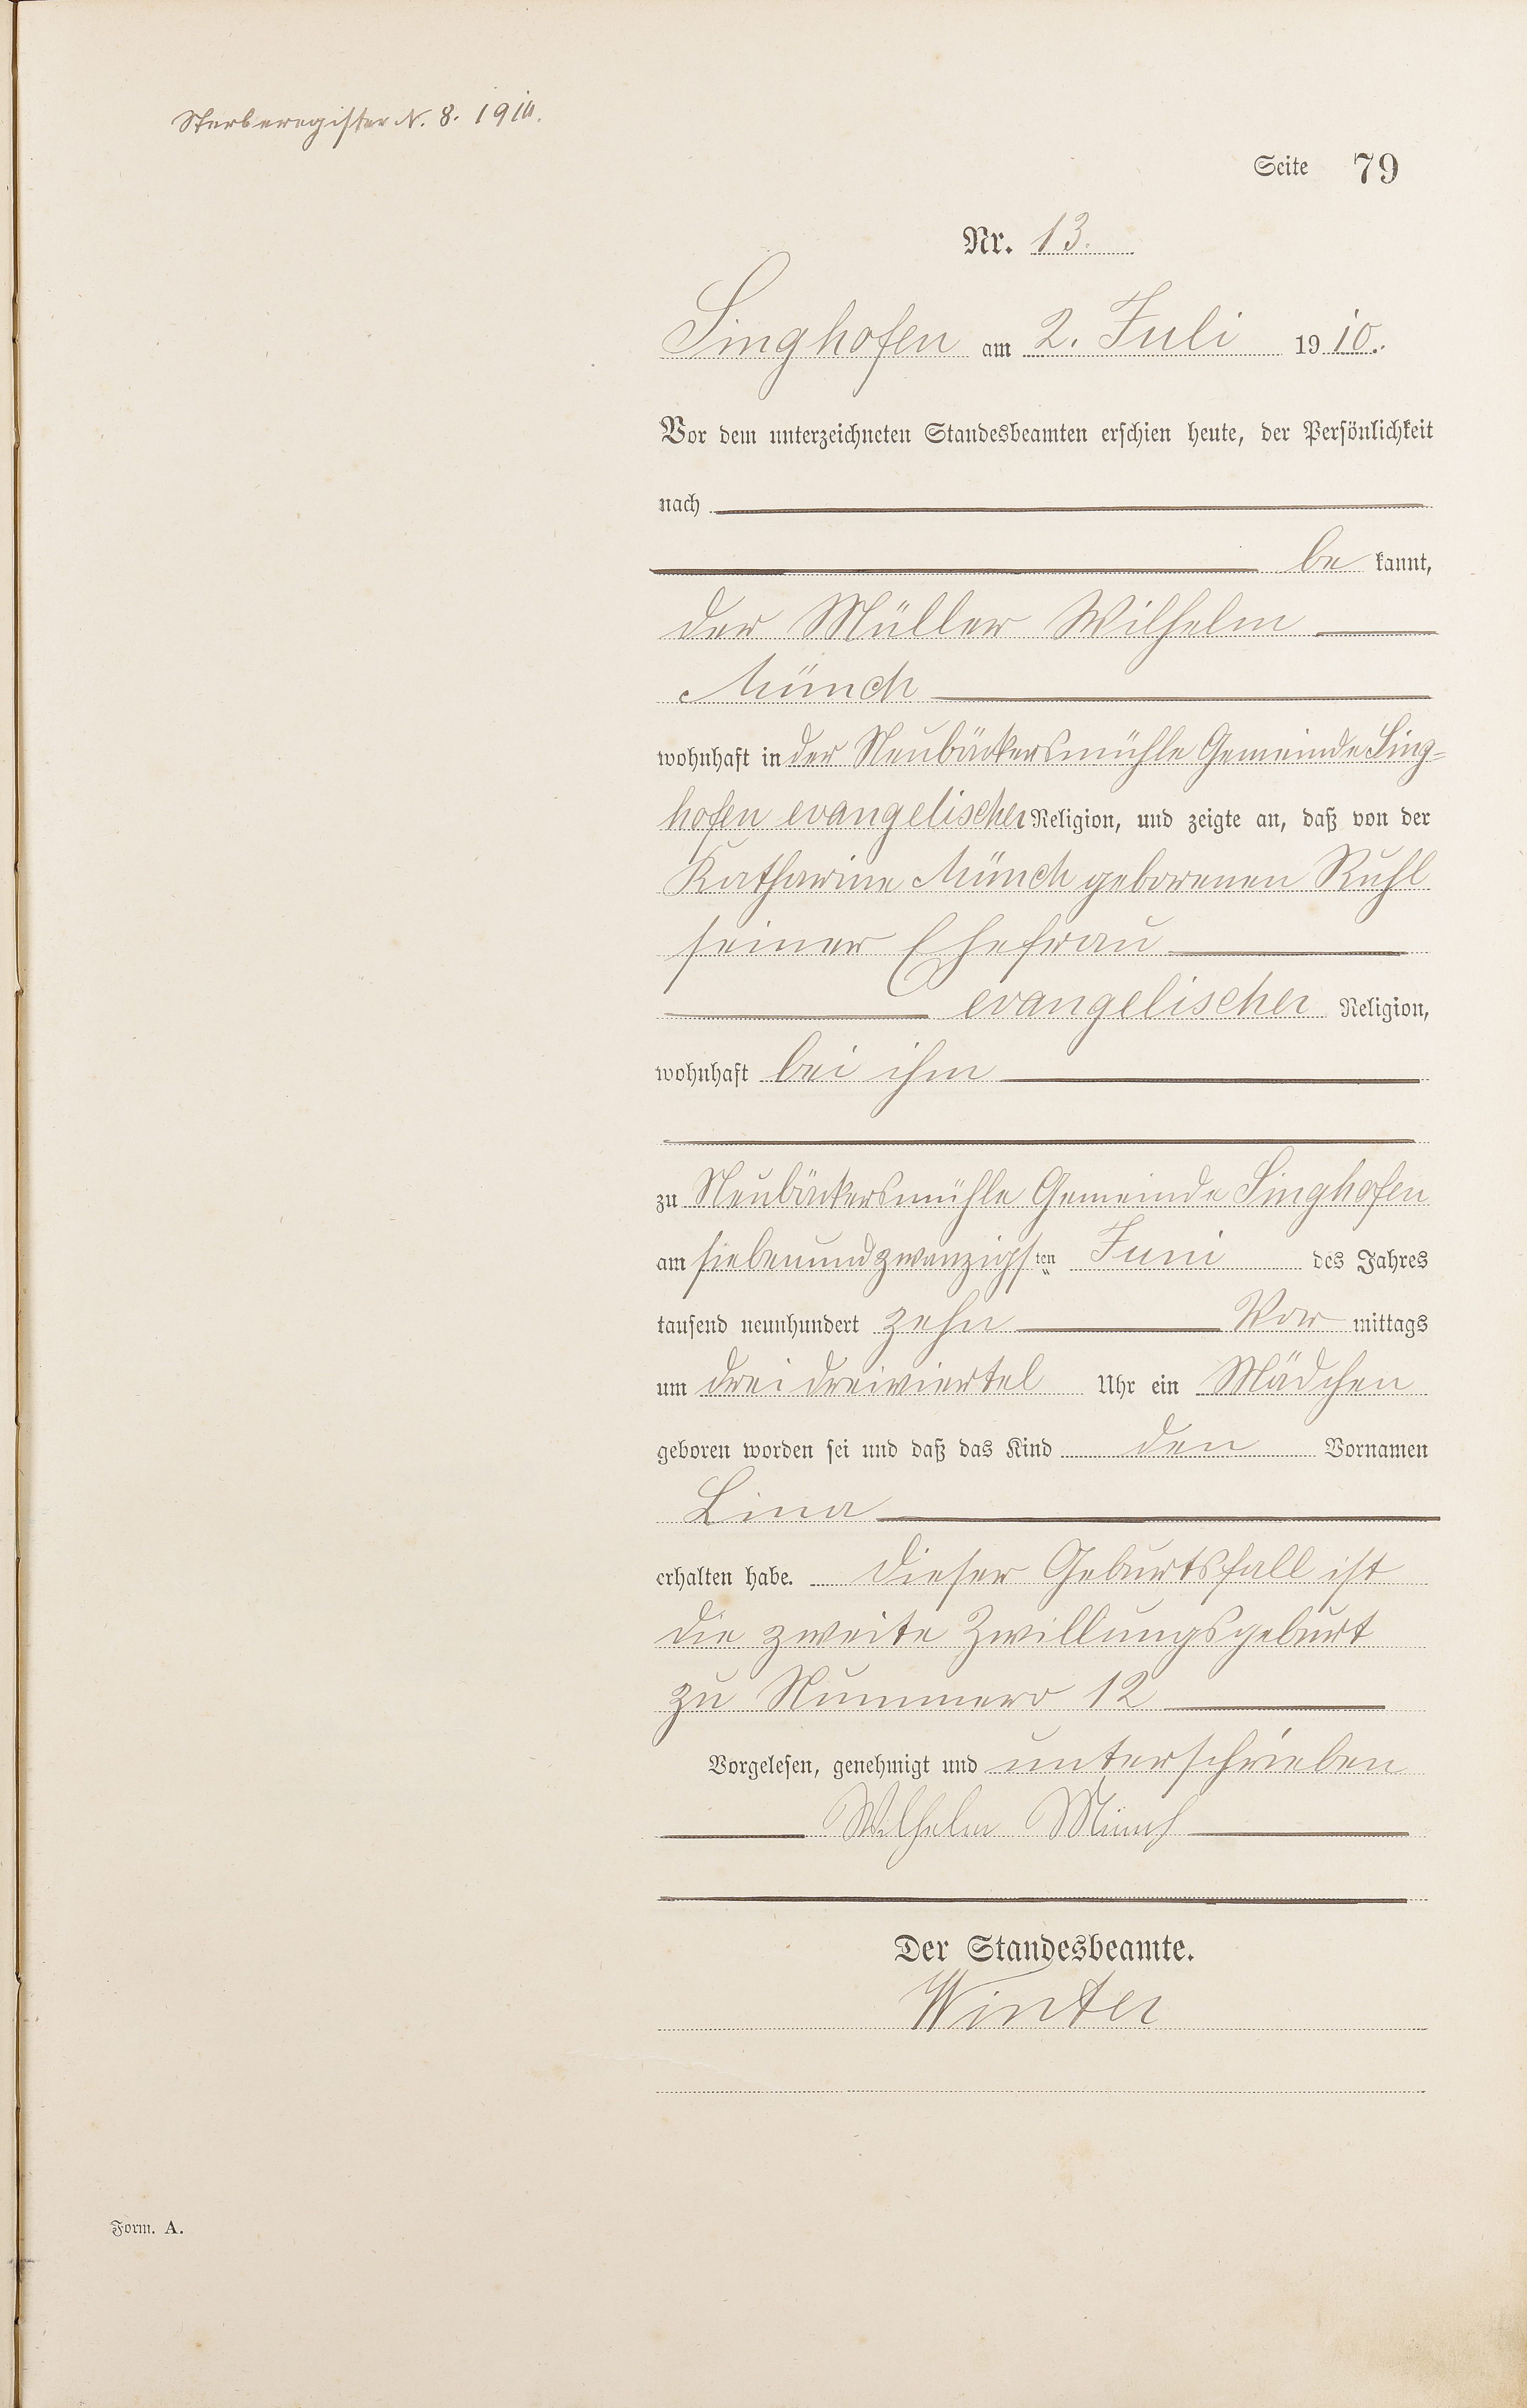 Sterberegister N. 8. 1910.
Seite 79
Nr. 13.
Singhofen am 2. Juli 1910.
Vor dem unterzeichneten Standesbeamten erschien heute, der Persönlichkeit
nach
be kannt,
der Müller Wilhelm
Münch
wohnhaft in der Neubäckersmühle Gemeinde Sing-
hofen evangelischer Religion, und zeigte an, daß von der
Katharine Münch geborenen Ruhl
seiner Ehefrau
evangelischer Religion,
wohnhaft bei ihm
zu Neubäckersmühle Gemeinde Singhofen
am siebenundzwanzigsten Juni des Jahres
tausend neunhundert zehn Vor mittags
um drei dreiviertel Uhr ein Mädchen
geboren worden sei und daß das Kind den Vornamen
Lina
erhalten habe. Dieser Geburtsfall ist
die zweite Zwillungsgeburt
zu Nummero 12
Vorgelesen, genehmigt und unterschrieben
Wilhelm Münch
Der Standesbeamte.
Winter
Form. A.